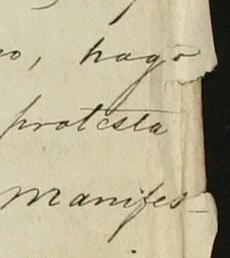 o, hago
protesta
manifes-